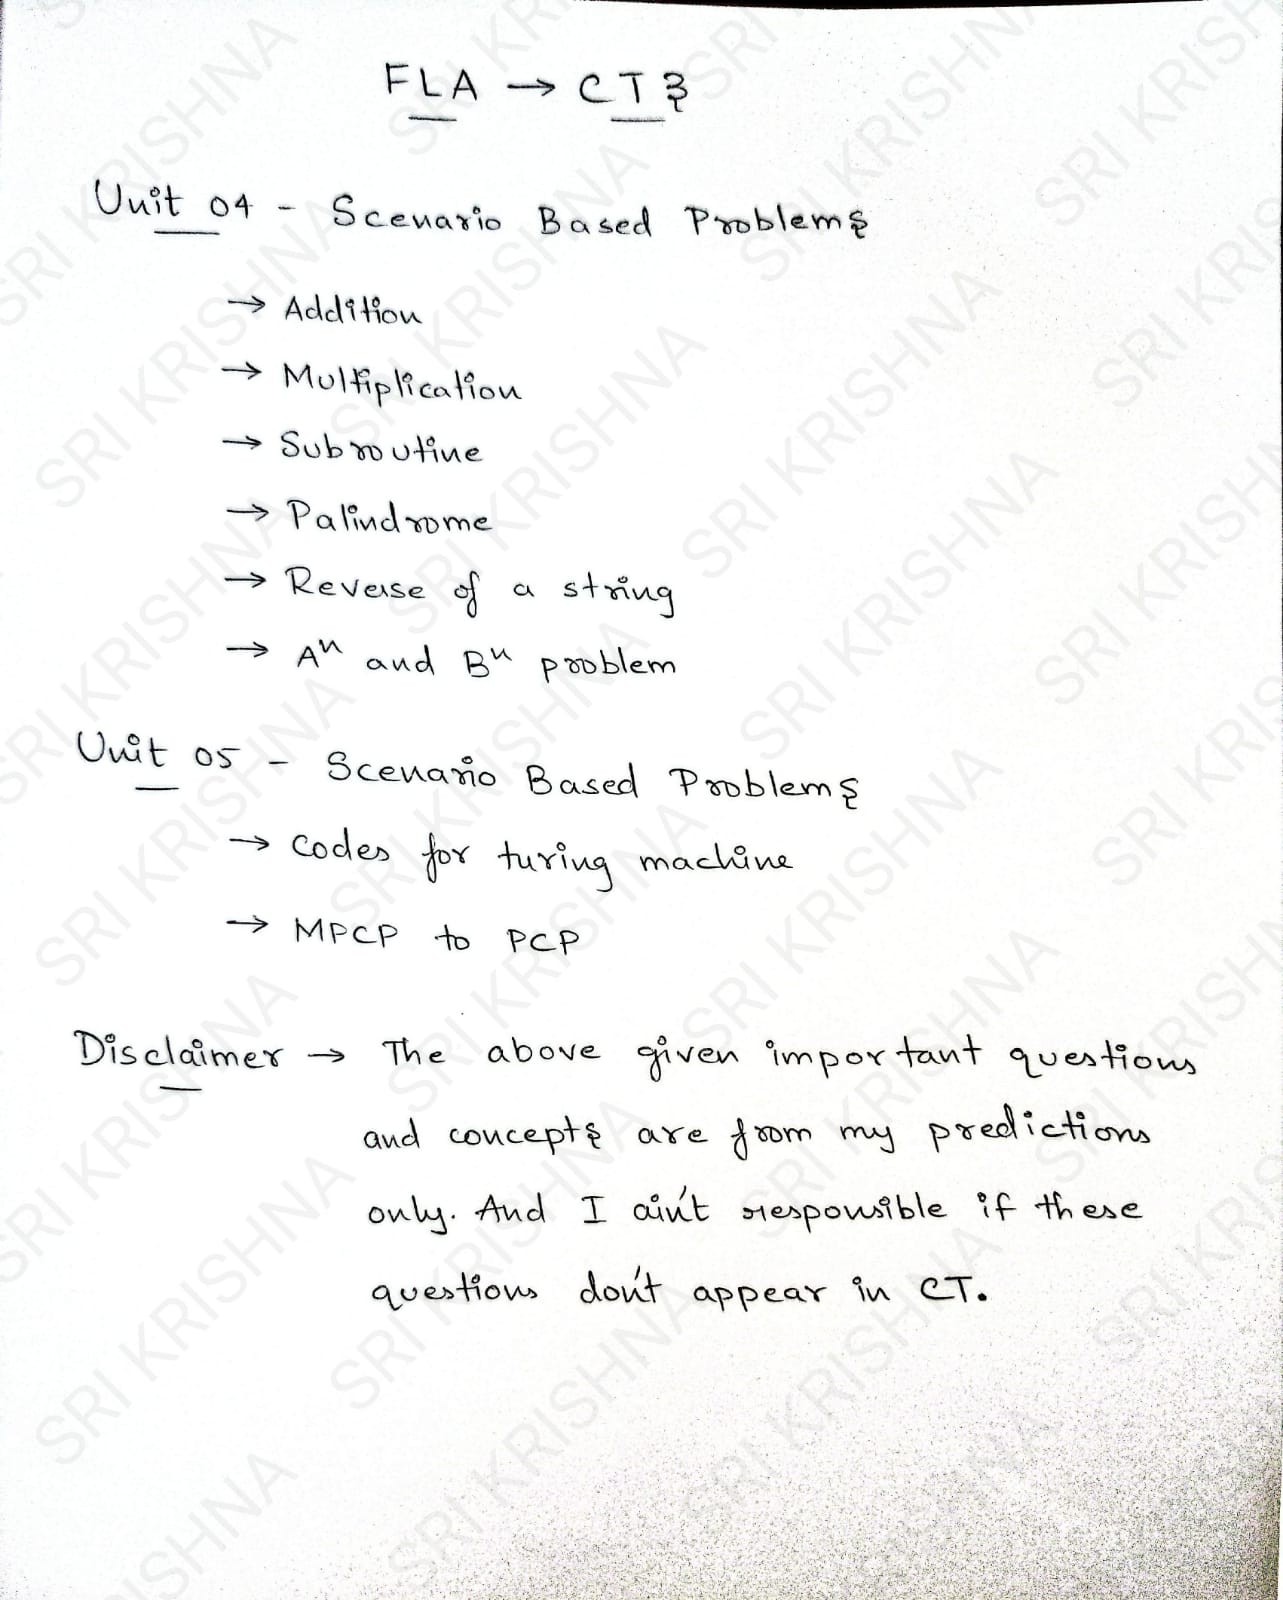 FLA → CT3
Unit 04 - Scenario Based Problems
→ Addition
→ Multiplication
→ Subroutine
→ Palindrome
→ Reverse of a string
→ Aⁿ and Bⁿ problem
Unit 05 - Scenario Based Problems
→ Codes for turing machine
→ MPCP to PCP
Disclaimer → The above given important questions
and concepts are from my predictions
only. And I ain't responsible if these
questions don't appear in CT.
SRI KRISHNA